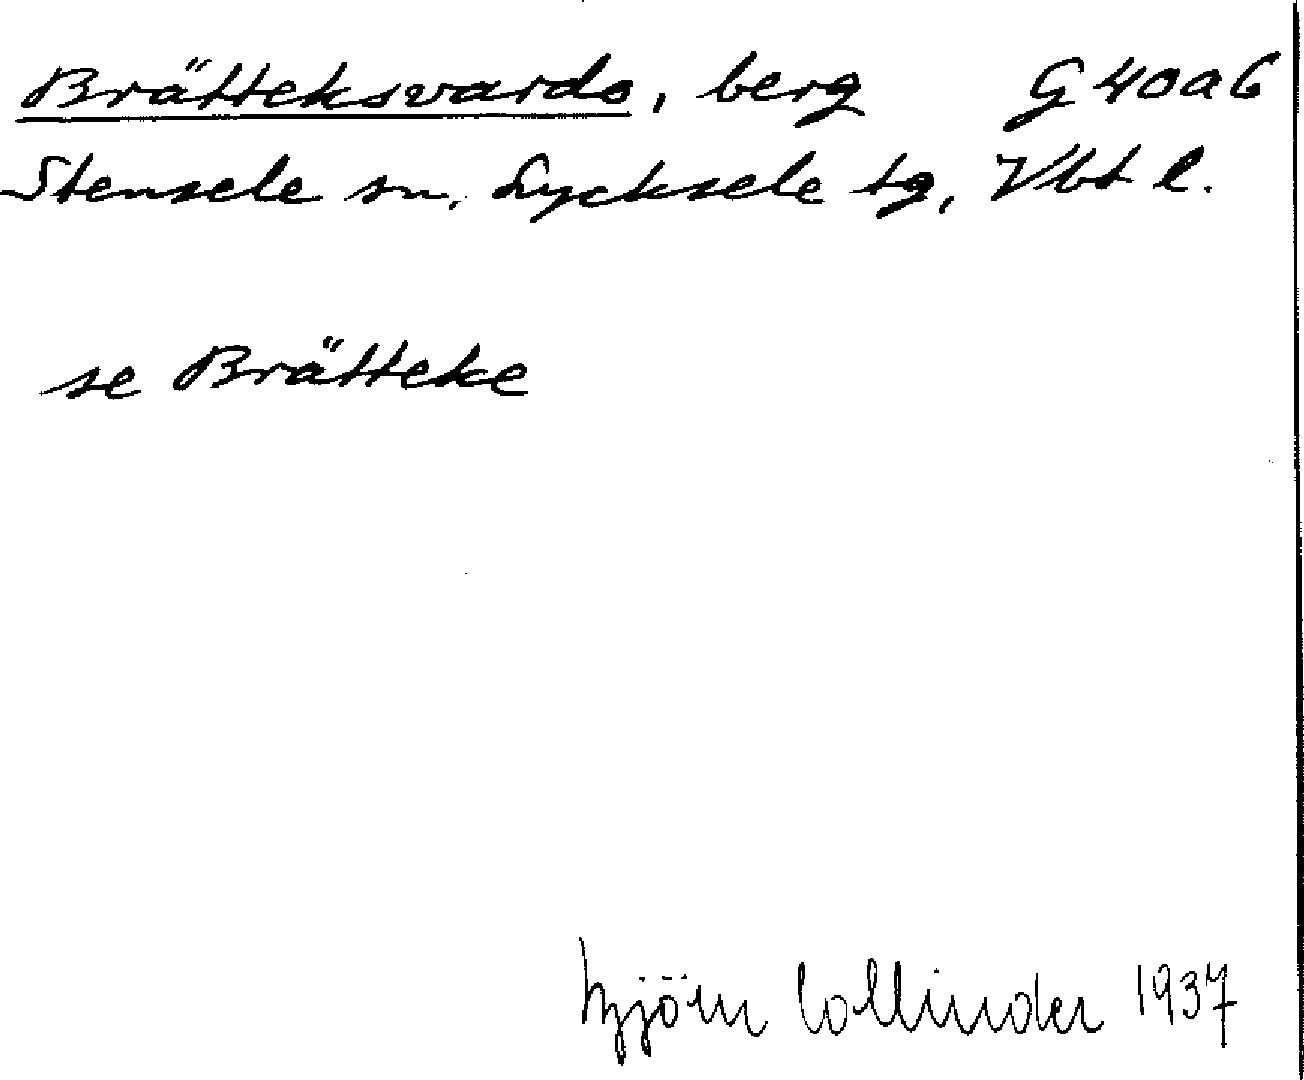 Brätteksvardo, berg G 40 a 6
Stensele sn. Lycksele tg, Vbt l.
se Brätteke
Björn Collinder 1937